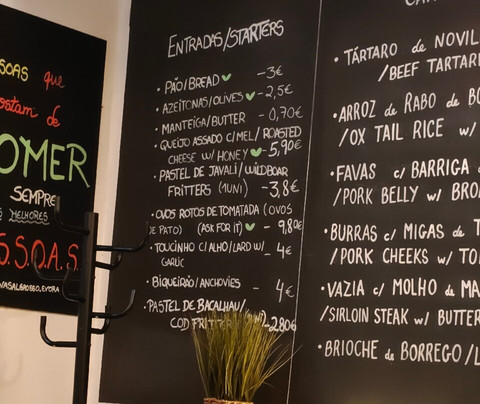 SOAS que
ostam de
OMER
SEMPRE
MELHORES
S.S.O.A.S
VASALGROSSO, EVORA
ENTRADAS/STARTERS
• PÃO/BREAD - 3€
• AZEITONAS/OLIVES - 2,5€
• MANTEIGA/BUTTER - 0,70€
• QUEIJO ASSADO C/MEL/ROASTED
CHEESE W/ HONEY - 5,90€
• PASTEL DE JAVALI/WILDBOAR
FRITTERS (1UNI) - 3,8€
• OVOS ROTOS DE TOMATADA (OVOS
DE PATO) (ASK FOR IT) - 9,80€
• TOUCINHO C/ALHO/LARD W/
GARLIC - 4€
• BIQUEIRÃO/ANCHOVIES - 4€
• PASTEL DE BACALHAU/
COD FRITTER 2,80€
• TÁRTARO de NOVIL
/BEEF TARTAR
• ARROZ de RABO de BO
/OX TAIL RICE w/
• FAVAS c/ BARRIGA
/PORK BELLY w/ BRO
• BURRAS c/ MIGAS de T
/PORK CHEEKS w/ TO
• VAZIA c/ MOLHO de MA
/SIRLOIN STEAK w/ BUTTER
• BRIOCHE de BORREGO/L